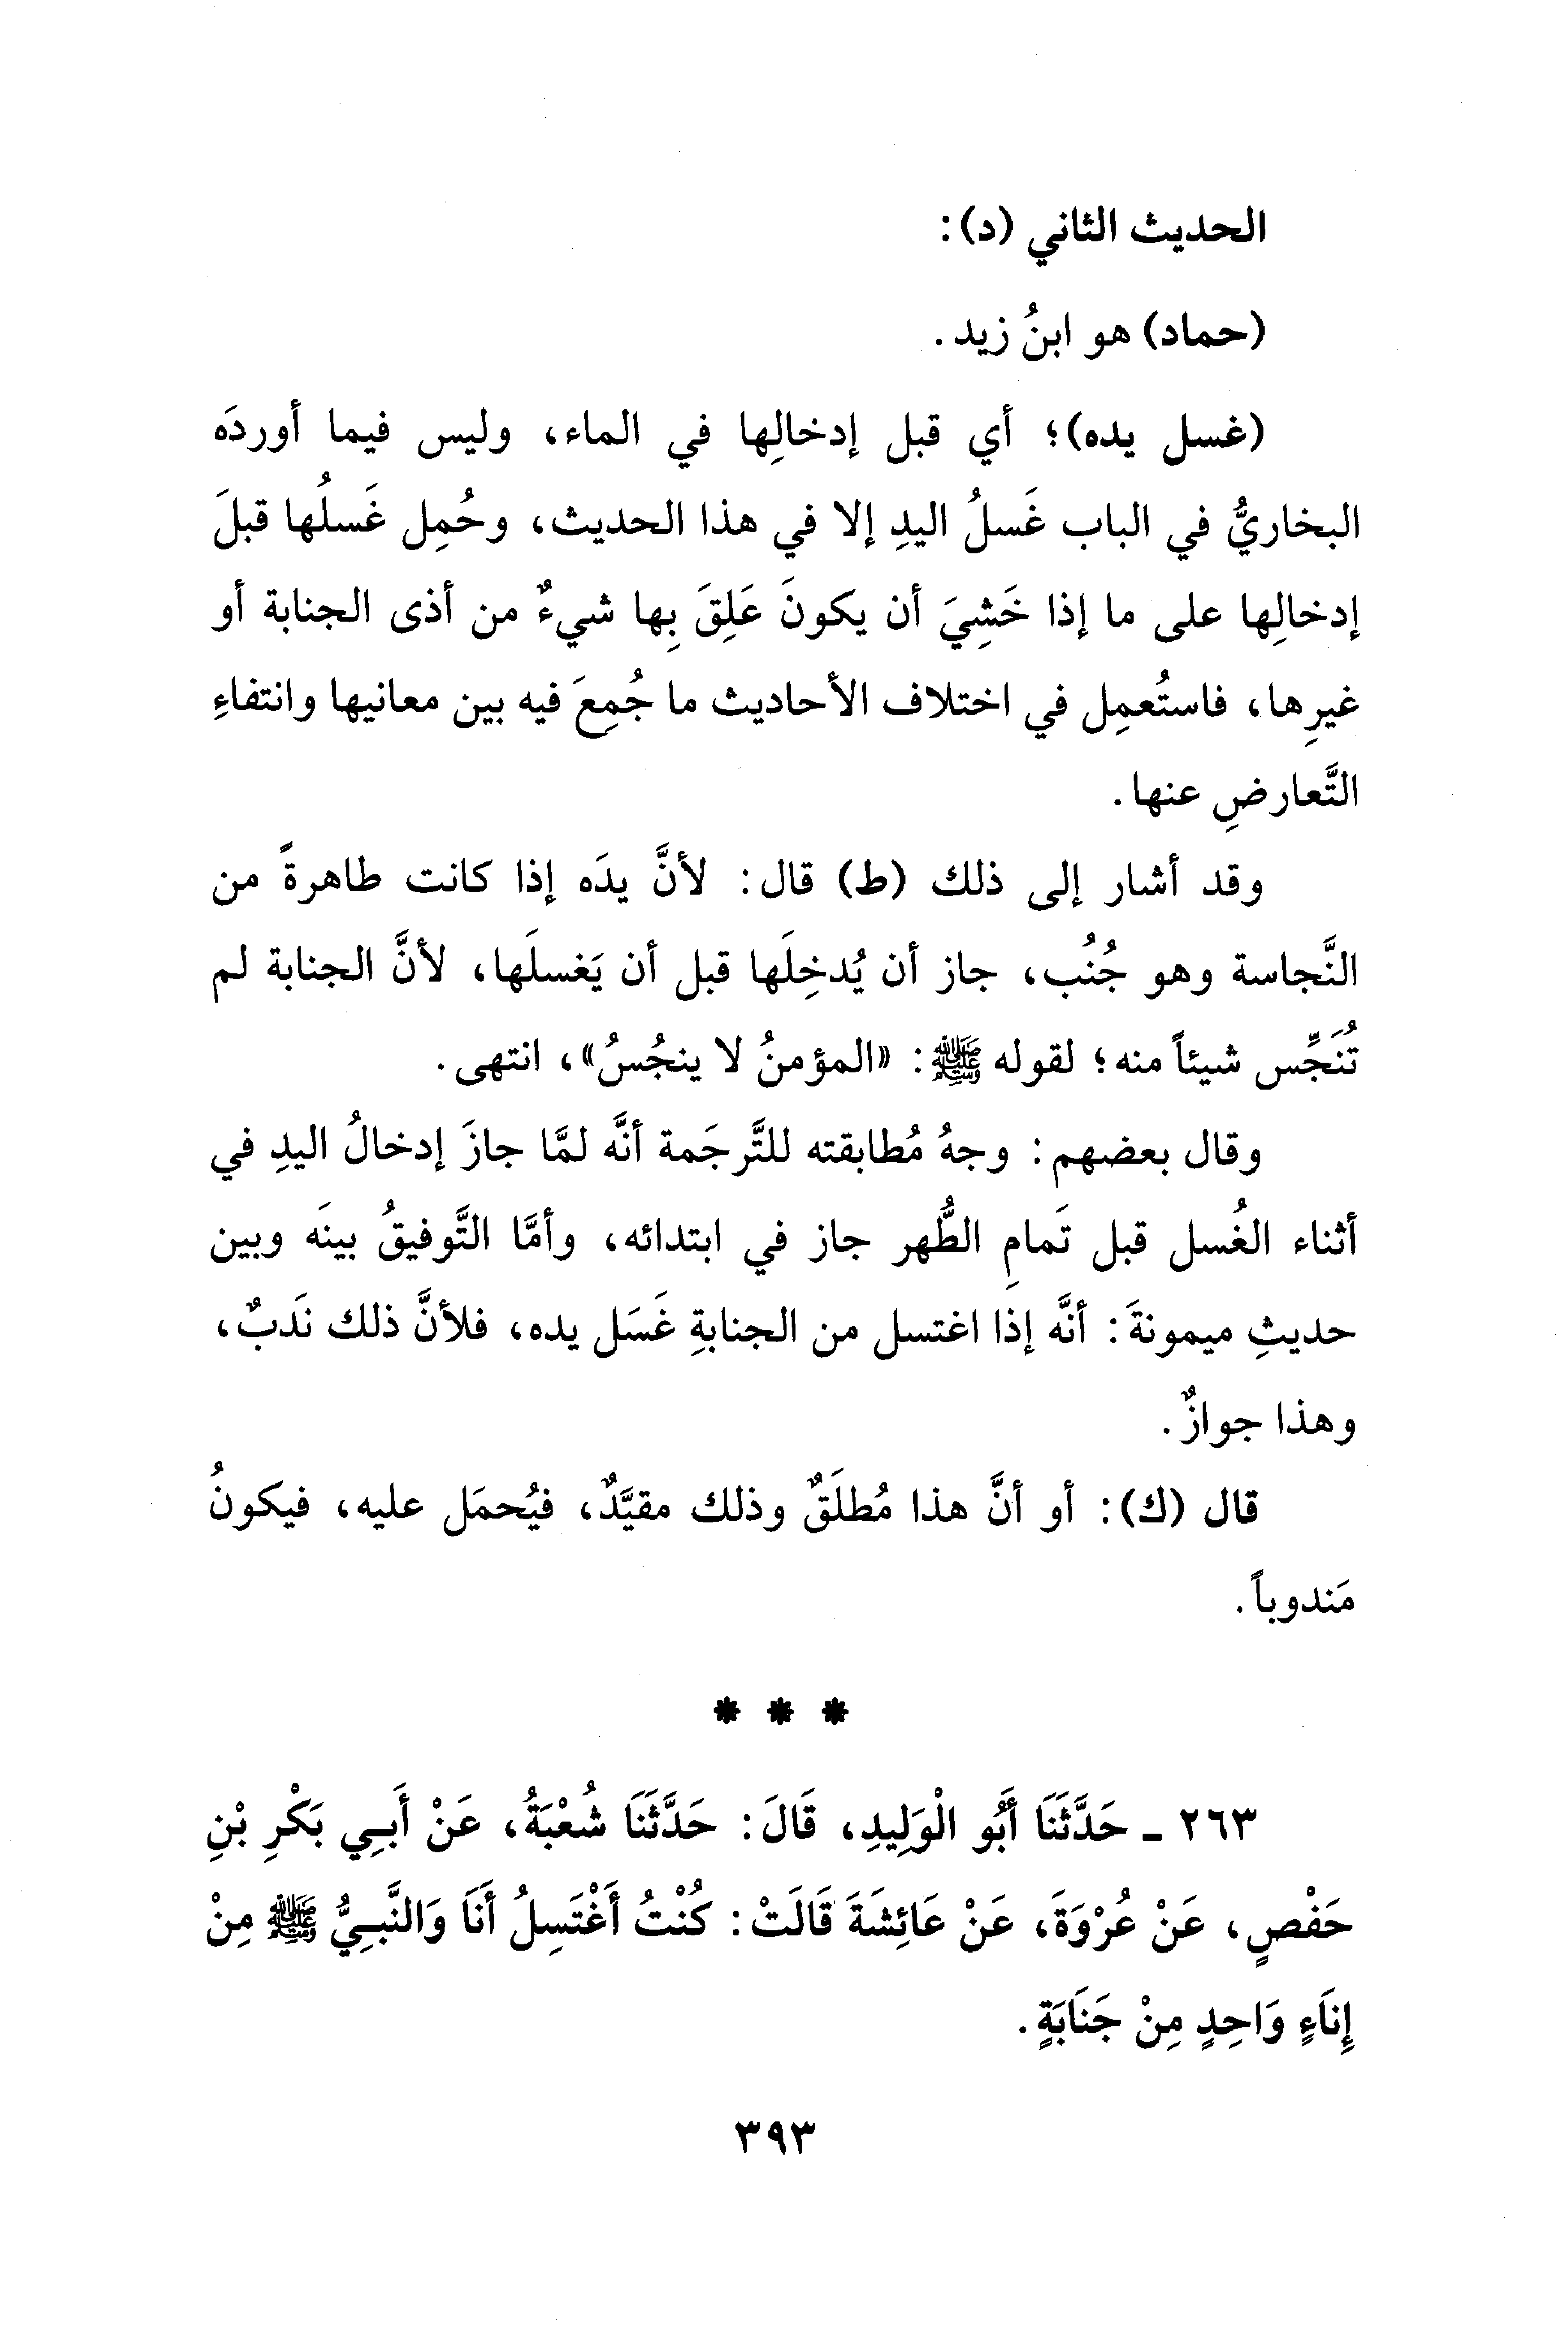 الحديث الثاني (د):
(حماد) هو ابنُ زيد.
(غسل يده)؛ أي قبل إدخالِها في الماء، وليس فيما أوردَه
البخاريُّ في الباب غَسلُ اليدِ إلا في هذا الحديث، وحُمِل غَسلُها قبلَ
إدخالِها على ما إذا خَشِيَ أن يكونَ عَلِقَ بِها شيءٌ من أذى الجنابة أو
غيرِها، فاستُعمِل في اختلاف الأحاديث ما جُمِعَ فيه بين معانيها وانتفاءِ
التَّعارضِ عنها.
وقد أشار إلى ذلك (ط) قال: لأنَّ يدَه إذا كانت طاهرةً من
النَّجاسة وهو جُنُب، جاز أن يُدخِلَها قبل أن يَغسلَها، لأنَّ الجنابة لم
تُنَجِّس شيئاً منه؛ لقوله ﷺ: «المؤمنُ لا ينجُسُ»، انتهى.
وقال بعضهم: وجهُ مُطابقته للتَّرجَمة أنَّه لمَّا جازَ إدخالُ اليدِ في
أثناء الغُسل قبل تَمامِ الطُّهر جاز في ابتدائه، وأمَّا التَّوفيقُ بينَه وبين
حديثِ ميمونةَ: أنَّه إذا اغتسل من الجنابةِ غَسَل يده، فلأنَّ ذلك نَدبٌ،
وهذا جوازٌ.
قال (ك): أو أنَّ هذا مُطلَقٌ وذلك مقيَّدٌ، فيُحمَل عليه، فيكونُ
مَندوباً.
* * *
٢٦٣ ـ حَدَّثَنَا أَبُو الْوَلِيدِ، قَالَ: حَدَّثَنَا شُعْبَةُ، عَنْ أَبِي بَكْرِ بْنِ
حَفْصٍ، عَنْ عُرْوَةَ، عَنْ عَائِشَةَ قَالَتْ: كُنْتُ أَغْتَسِلُ أَنَا وَالنَّبِيُّ ﷺ مِنْ
إِنَاءٍ وَاحِدٍ مِنْ جَنَابَةٍ.
٣٩٣